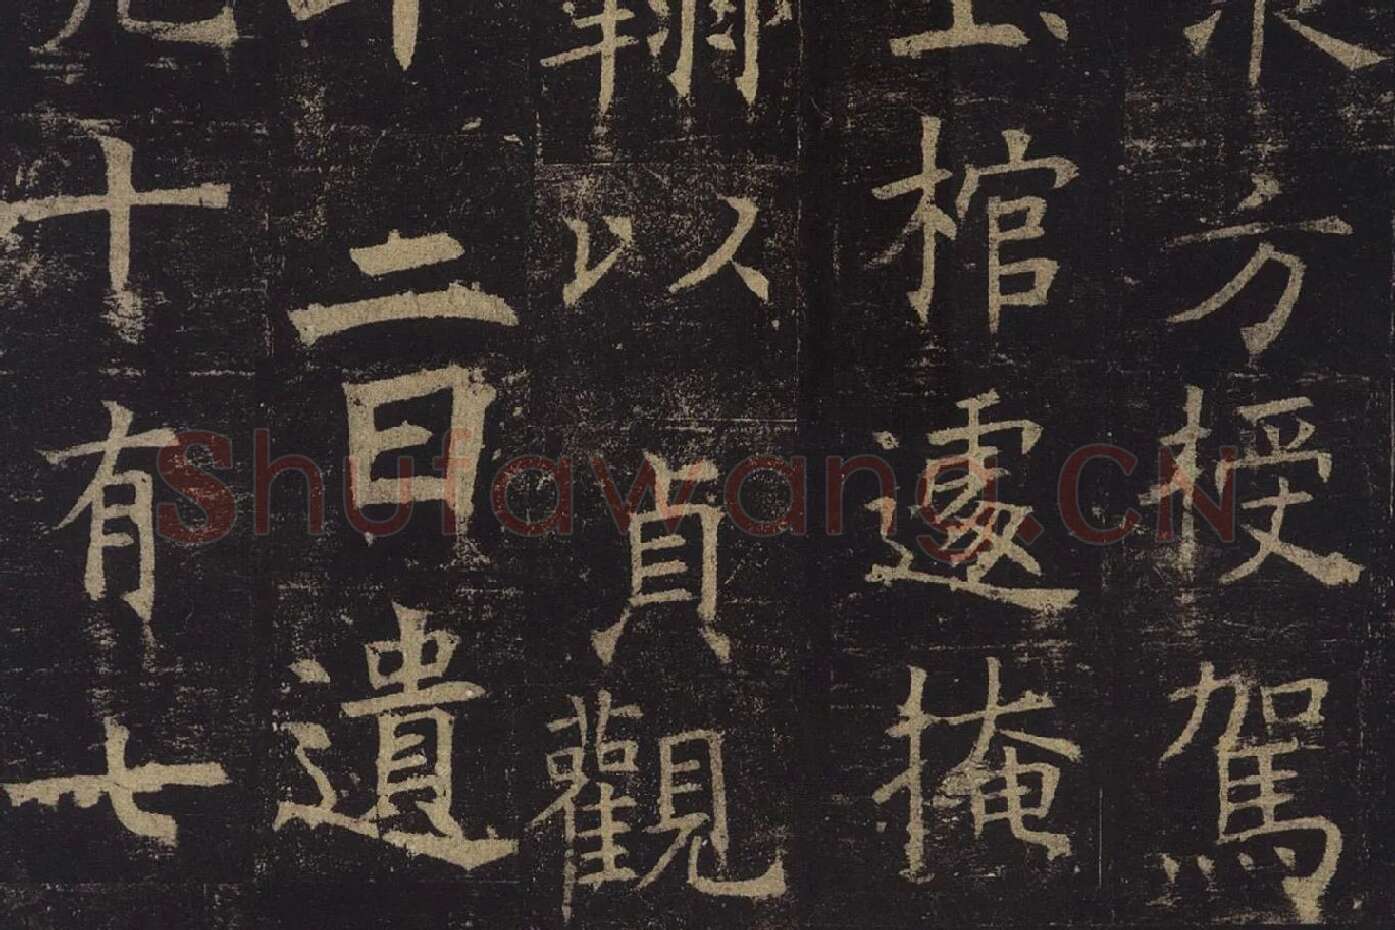 方授駕
玉棺遽掩
翰以貞觀
二日遺
十有七
Shufawang.CN